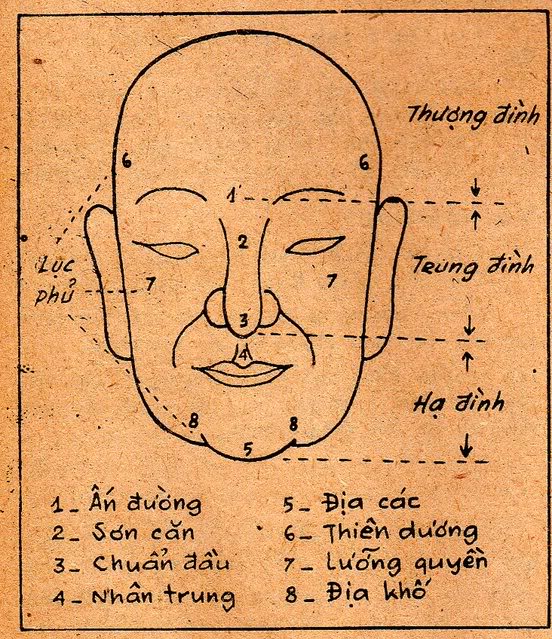 Thượng đình
6
6
1
2
Lục
phủ
7
7
Trung đình
3
4
Hạ đình
8
8
5
1_ Ấn đường
2_ Sơn căn
3_ Chuẩn đầu
4_ Nhân trung
5_ Địa các
6_ Thiên dương
7_ Lưỡng quyền
8_ Địa khố